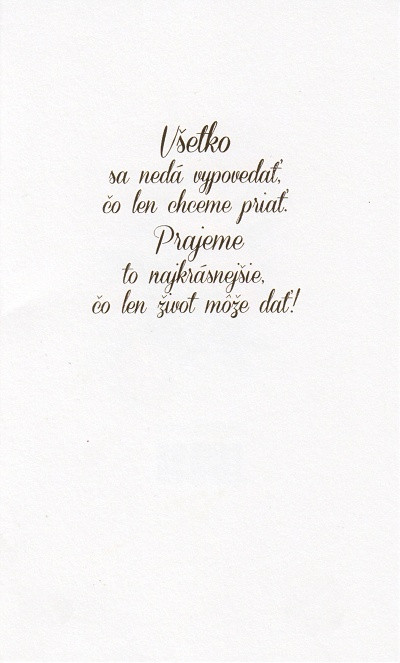 Všetko
sa nedá vypovedať,
čo len chceme priať.
Prajeme
to najkrásnejšie,
čo len život môže dať!